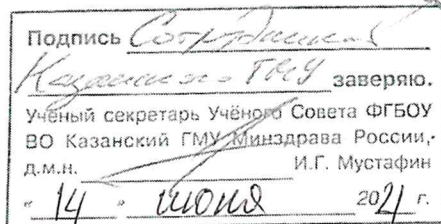 Подпись Сотрудника
Казанского ГМУ заверяю.
Учёный секретарь Учёного Совета ФГБОУ
ВО Казанский ГМУ Минздрава России,
д.м.н. И.Г. Мустафин
« 14 » июня 2021 г.